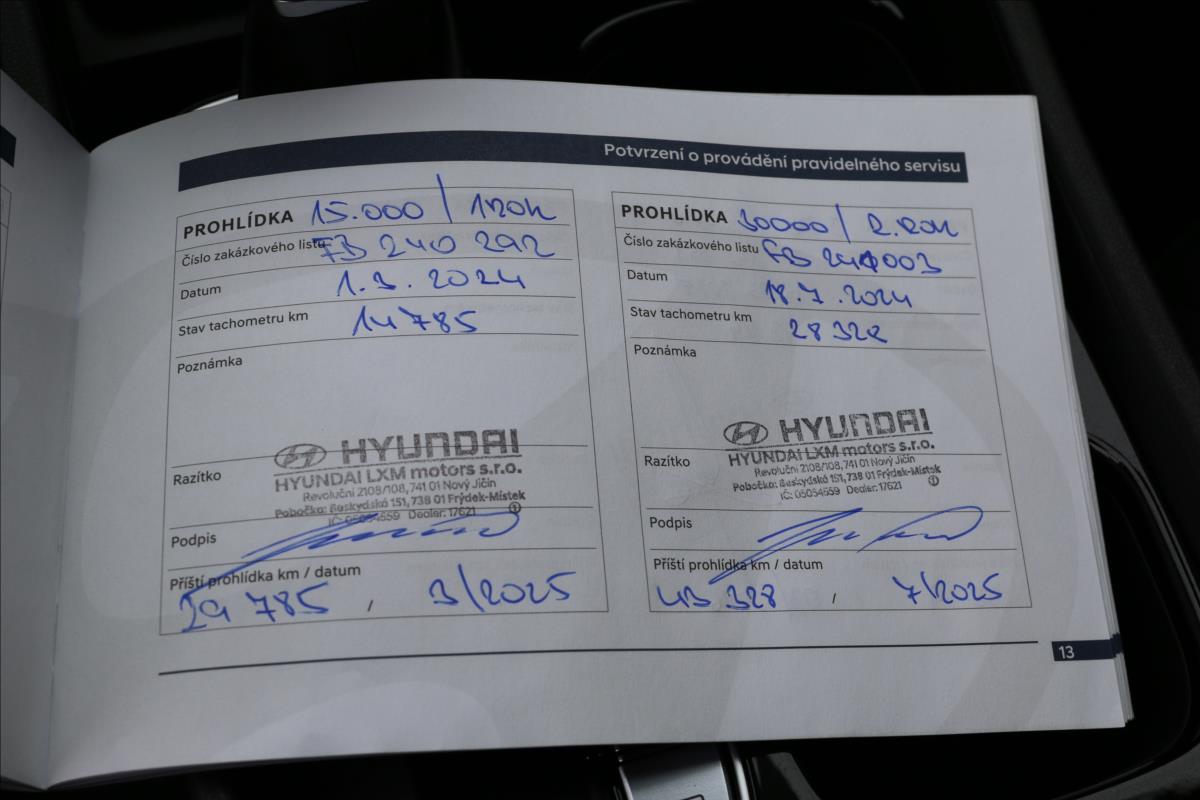 Potvrzení o provádění pravidelného servisu
PROHLÍDKA 15.000 / 1.ROK
Číslo zakázkového listu FB 240 292
Datum 1.3.2024
Stav tachometru km 14 785
Poznámka
Razítko
HYUNDAI
HYUNDAI LXM motors s.r.o.
Revoluční 2108/108, 741 01 Nový Jičín
Pobočka: Beskydská 151, 738 01 Frýdek-Místek
IČ: 05054559 Dealer: 17621 1
Podpis
Příští prohlídka km / datum
29 785 / 3/2025
PROHLÍDKA 30000 / 2.ROK
Číslo zakázkového listu FB 241003
Datum 18.7.2024
Stav tachometru km 28 328
Poznámka
Razítko
HYUNDAI
HYUNDAI LXM motors s.r.o.
Revoluční 2108/108, 741 01 Nový Jičín
Pobočka: Beskydská 151, 738 01 Frýdek-Místek
IČ: 05054559 Dealer: 17621 1
Podpis
Příští prohlídka km / datum
43 328 / 7/2025
13